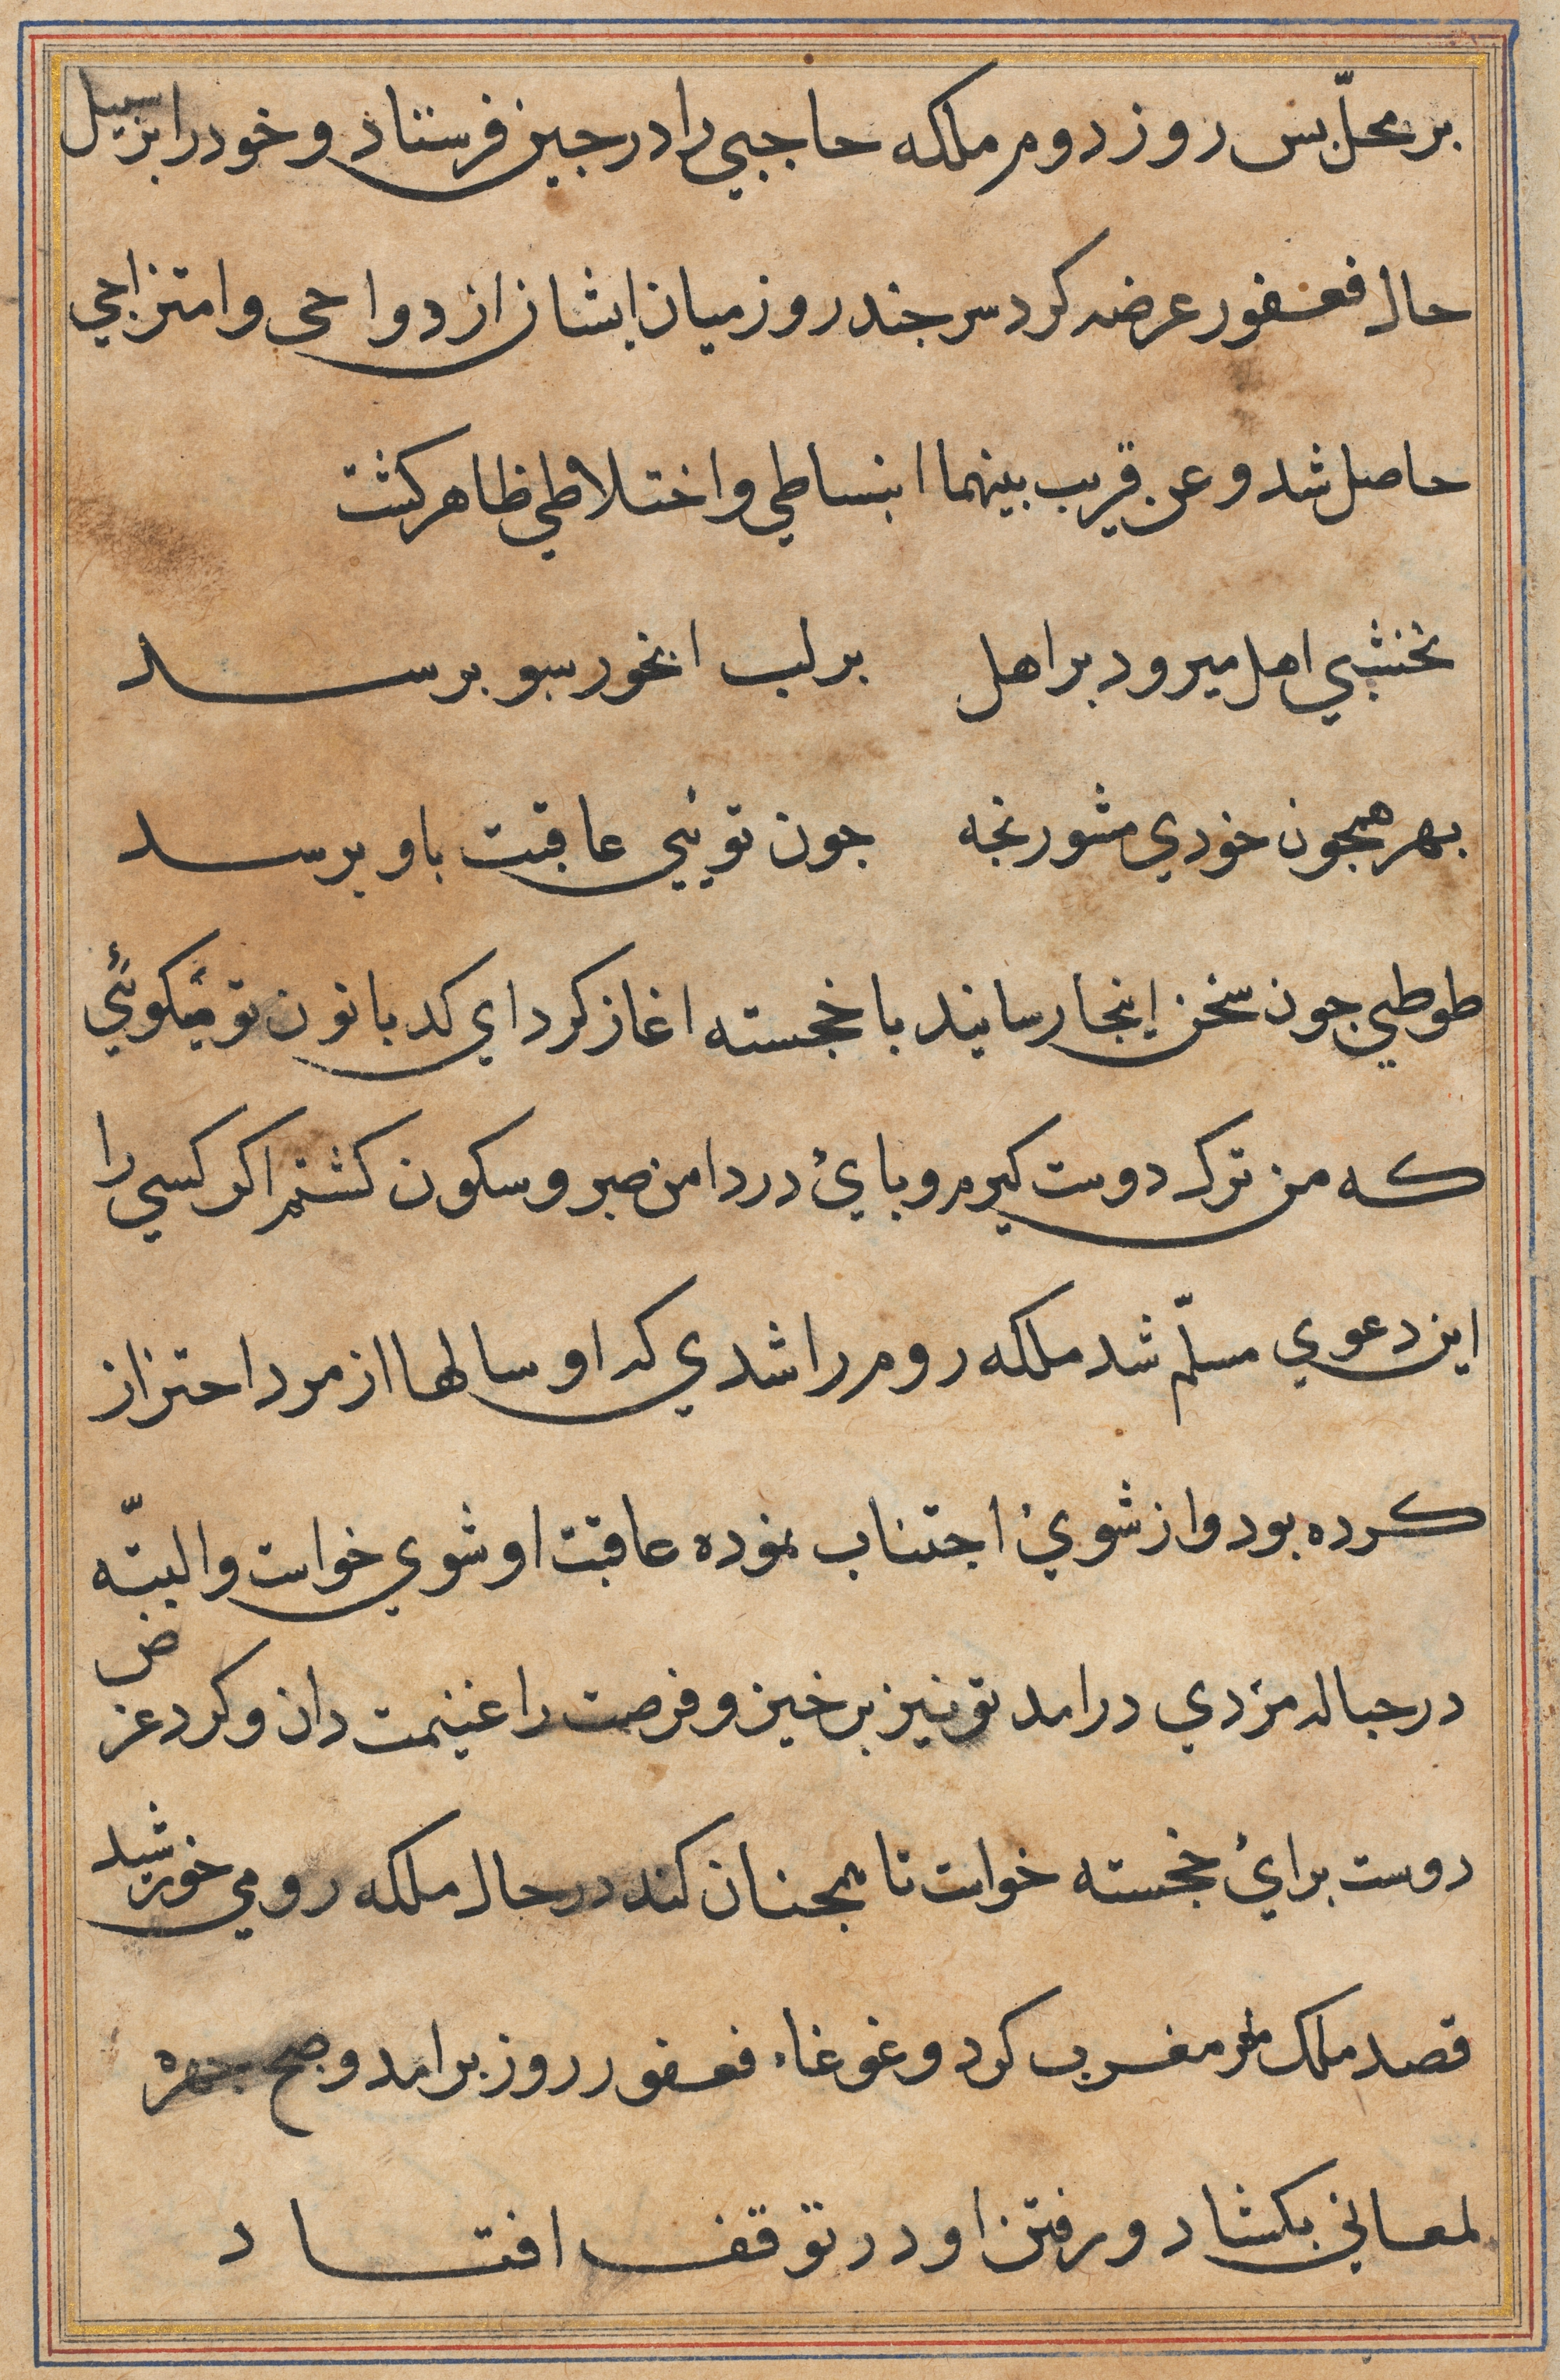 بر محلّ بس روز دوم ملکه حاجبي را در جین فرستاد و خود را بر سبیل
حال فغفور عرضه کرد سر جند روز میان ایشان ازدواجی و امتزاجي
حاصل شد و عن قریب بینهما انبساطي و اختلاطي ظاهر کشت
نخشبي اهل میرود بر اهل بر لب ابخور سبو برسد
بهر همجون خودي مشو رنجه جون تویني عاقبت باو برسد
طوطي جون سخن اینجا رسانید با خجسته اغاز کرد اي کدبانو ن تو میکوئي
که من ترک دوست کیرم و باي در دامن صبر و سکون کشم اکر کسي را
این دعوي مسلّم شد ملکه روم را شدي که او سالها از مرد احتراز
کرده بود و از شوي اجتناب نموده عاقبت او شوي خواست و البتّه
در حباله مردي درامد تو نیز برخیز و فرصت را غنیمت دان و کرد عرض
دوست براي خجسته خواست تا همجنان کند در حال ملکه رومي خورشید
قصد ملک مغرب کرد و غوغاء فغفور روز برامد و صبح جهره
لمعاني بکشاد و رفتن او در توقف افتاد